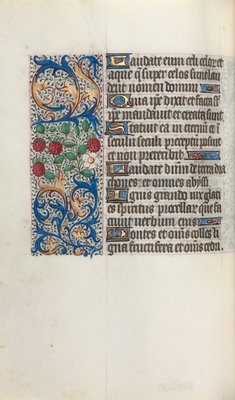 Laudate eum celi celor et
aque q̄ super celos sunt lau
dent nomen domini
Quia ip̄e dixit et facta sūt
ip̄e mandauit et creata sunt
Statuit ea in eternū et ī
seculū seculi preceptū posuit
et non preteribit
Laudate dn̄m de terra dra
chones et omnes abyssi
Ignis grando nix glaci
es spiritus procellar que fa
ciunt uerbum eius
Montes et om̄s colles li
gna fructifera et om̄s cedri